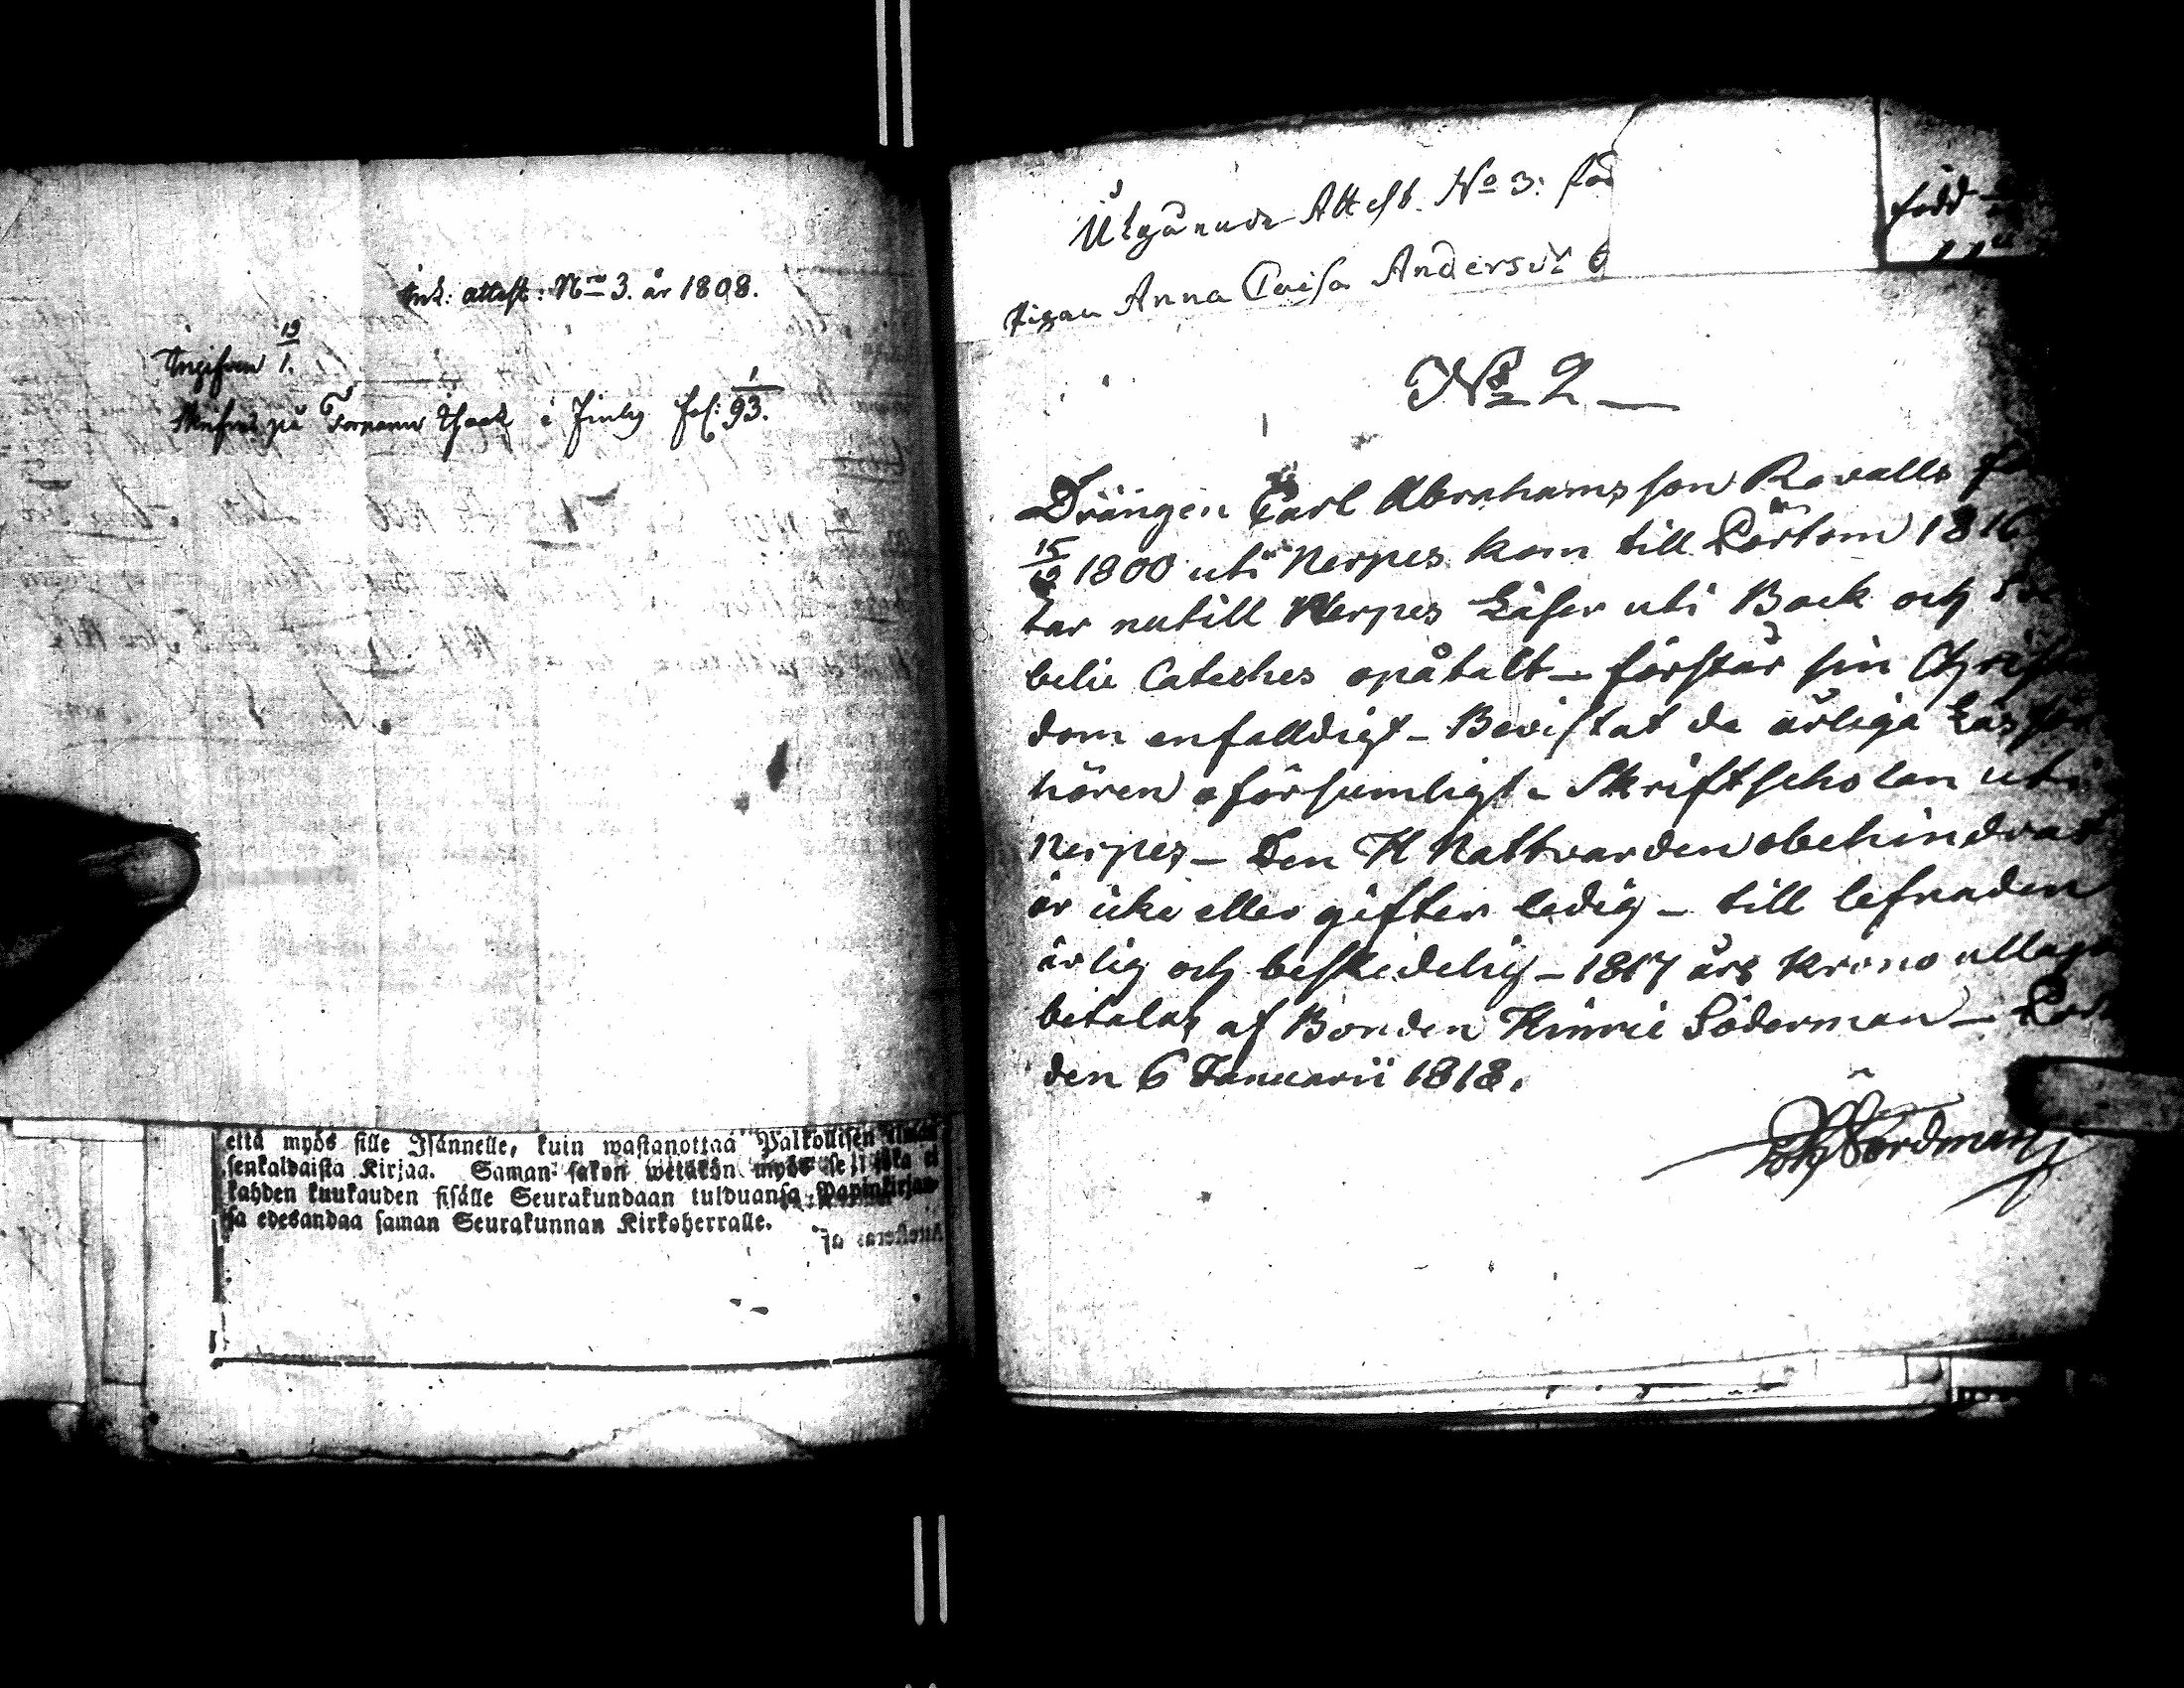 Ink: attest: Nro 3. år 1808.
Ingifven 19/1.
Skrifves på Torparen Isack i Finby fol: 1/93.
että myös sille Isännelle, kuin wastanottaa Palkollisen ilman
senkaldaista Kirjaa. Saman sakon wetäkön myös se joka ei
kahden kuukauden sisälle Seurakundaan tulduansa Papinkirjaa
sa edesandaa saman Seurakunnan Kirkoherralle.
Utgånende Attest. No 3: för
född
pigan Anna Caisa Andersdr
No 2
Drängen Carl Abrahamsson Revalls
15/12 1800 uti Nerpes kom till Pörtom 1816
tar nu till Nerpes Läser uti Bock och
belie Cateches opåtalt – förstår sin Christ
dom enfalldigt – Bevistat de årliga Läsför
hören oförsumligt – Skriftscholan uti
Nerpes – Den H Nattvarden obehindrat
är icke eller gifter ledig – till lefnaden
ärlig och beskedelig – 1817 års Krono utlagor
betalas af Bonden Hinric Söderman –
den 6 Januarii 1818.
Nordman